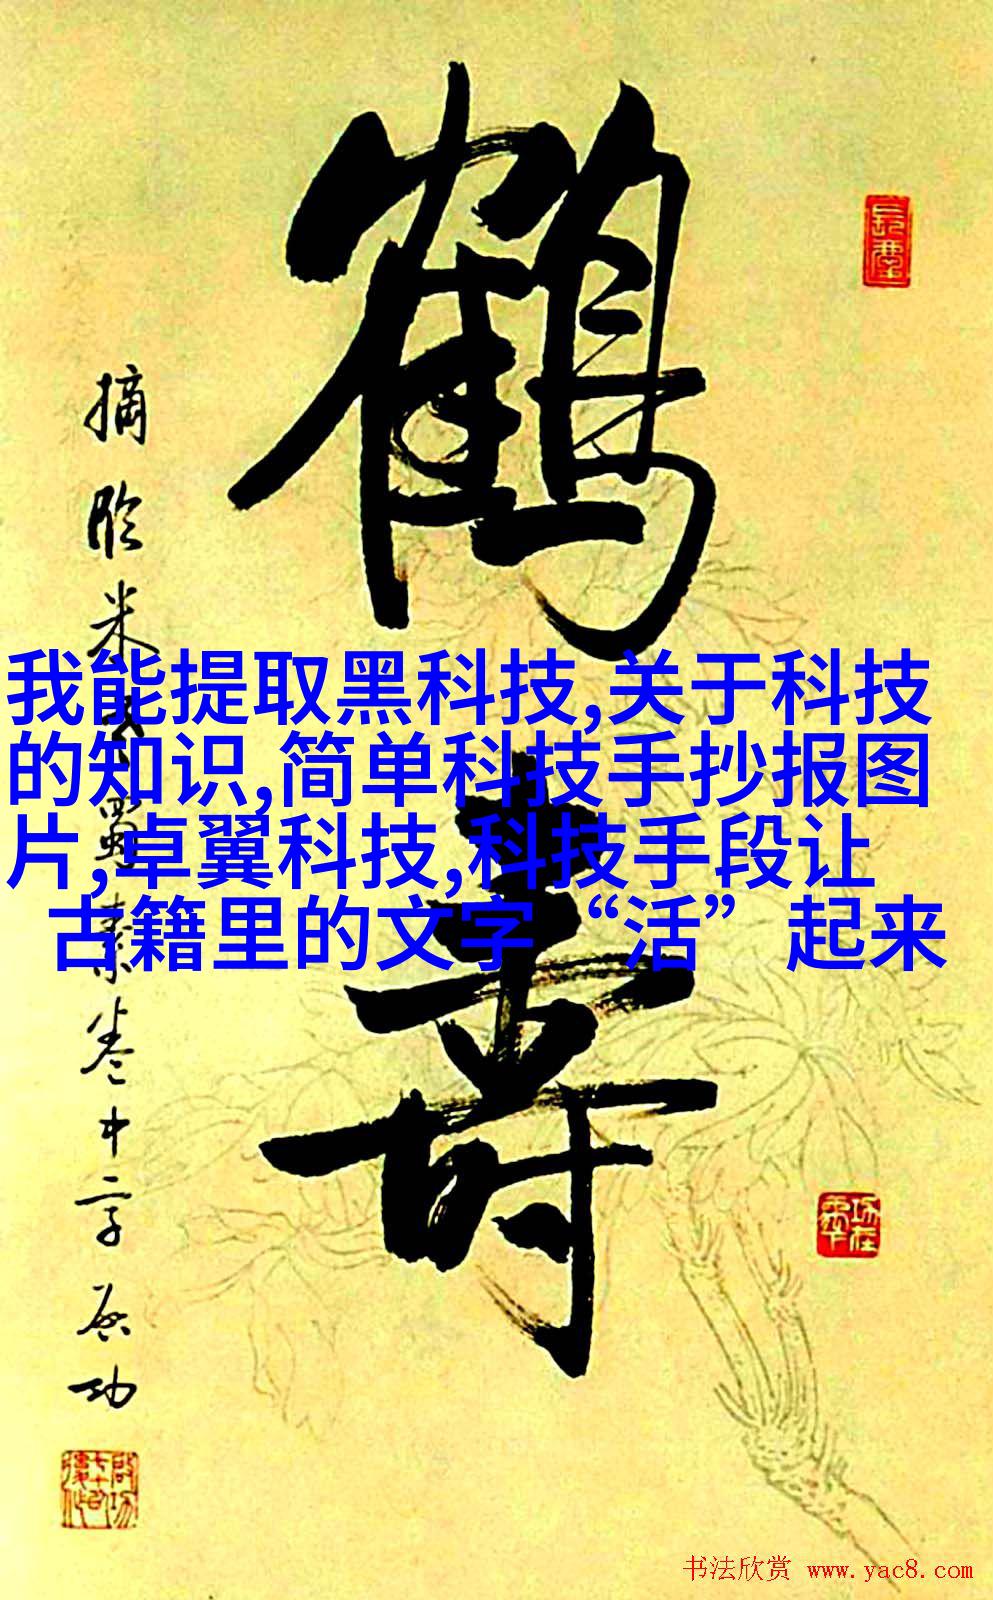 鶴
寿
摘临米蜀素卷中字启功
我能提取黑科技,关于科技
的知识,简单科技手抄报图
片,卓翼科技,科技手段让
古籍里的文字“活”起来
书法欣赏 www.yac8.com